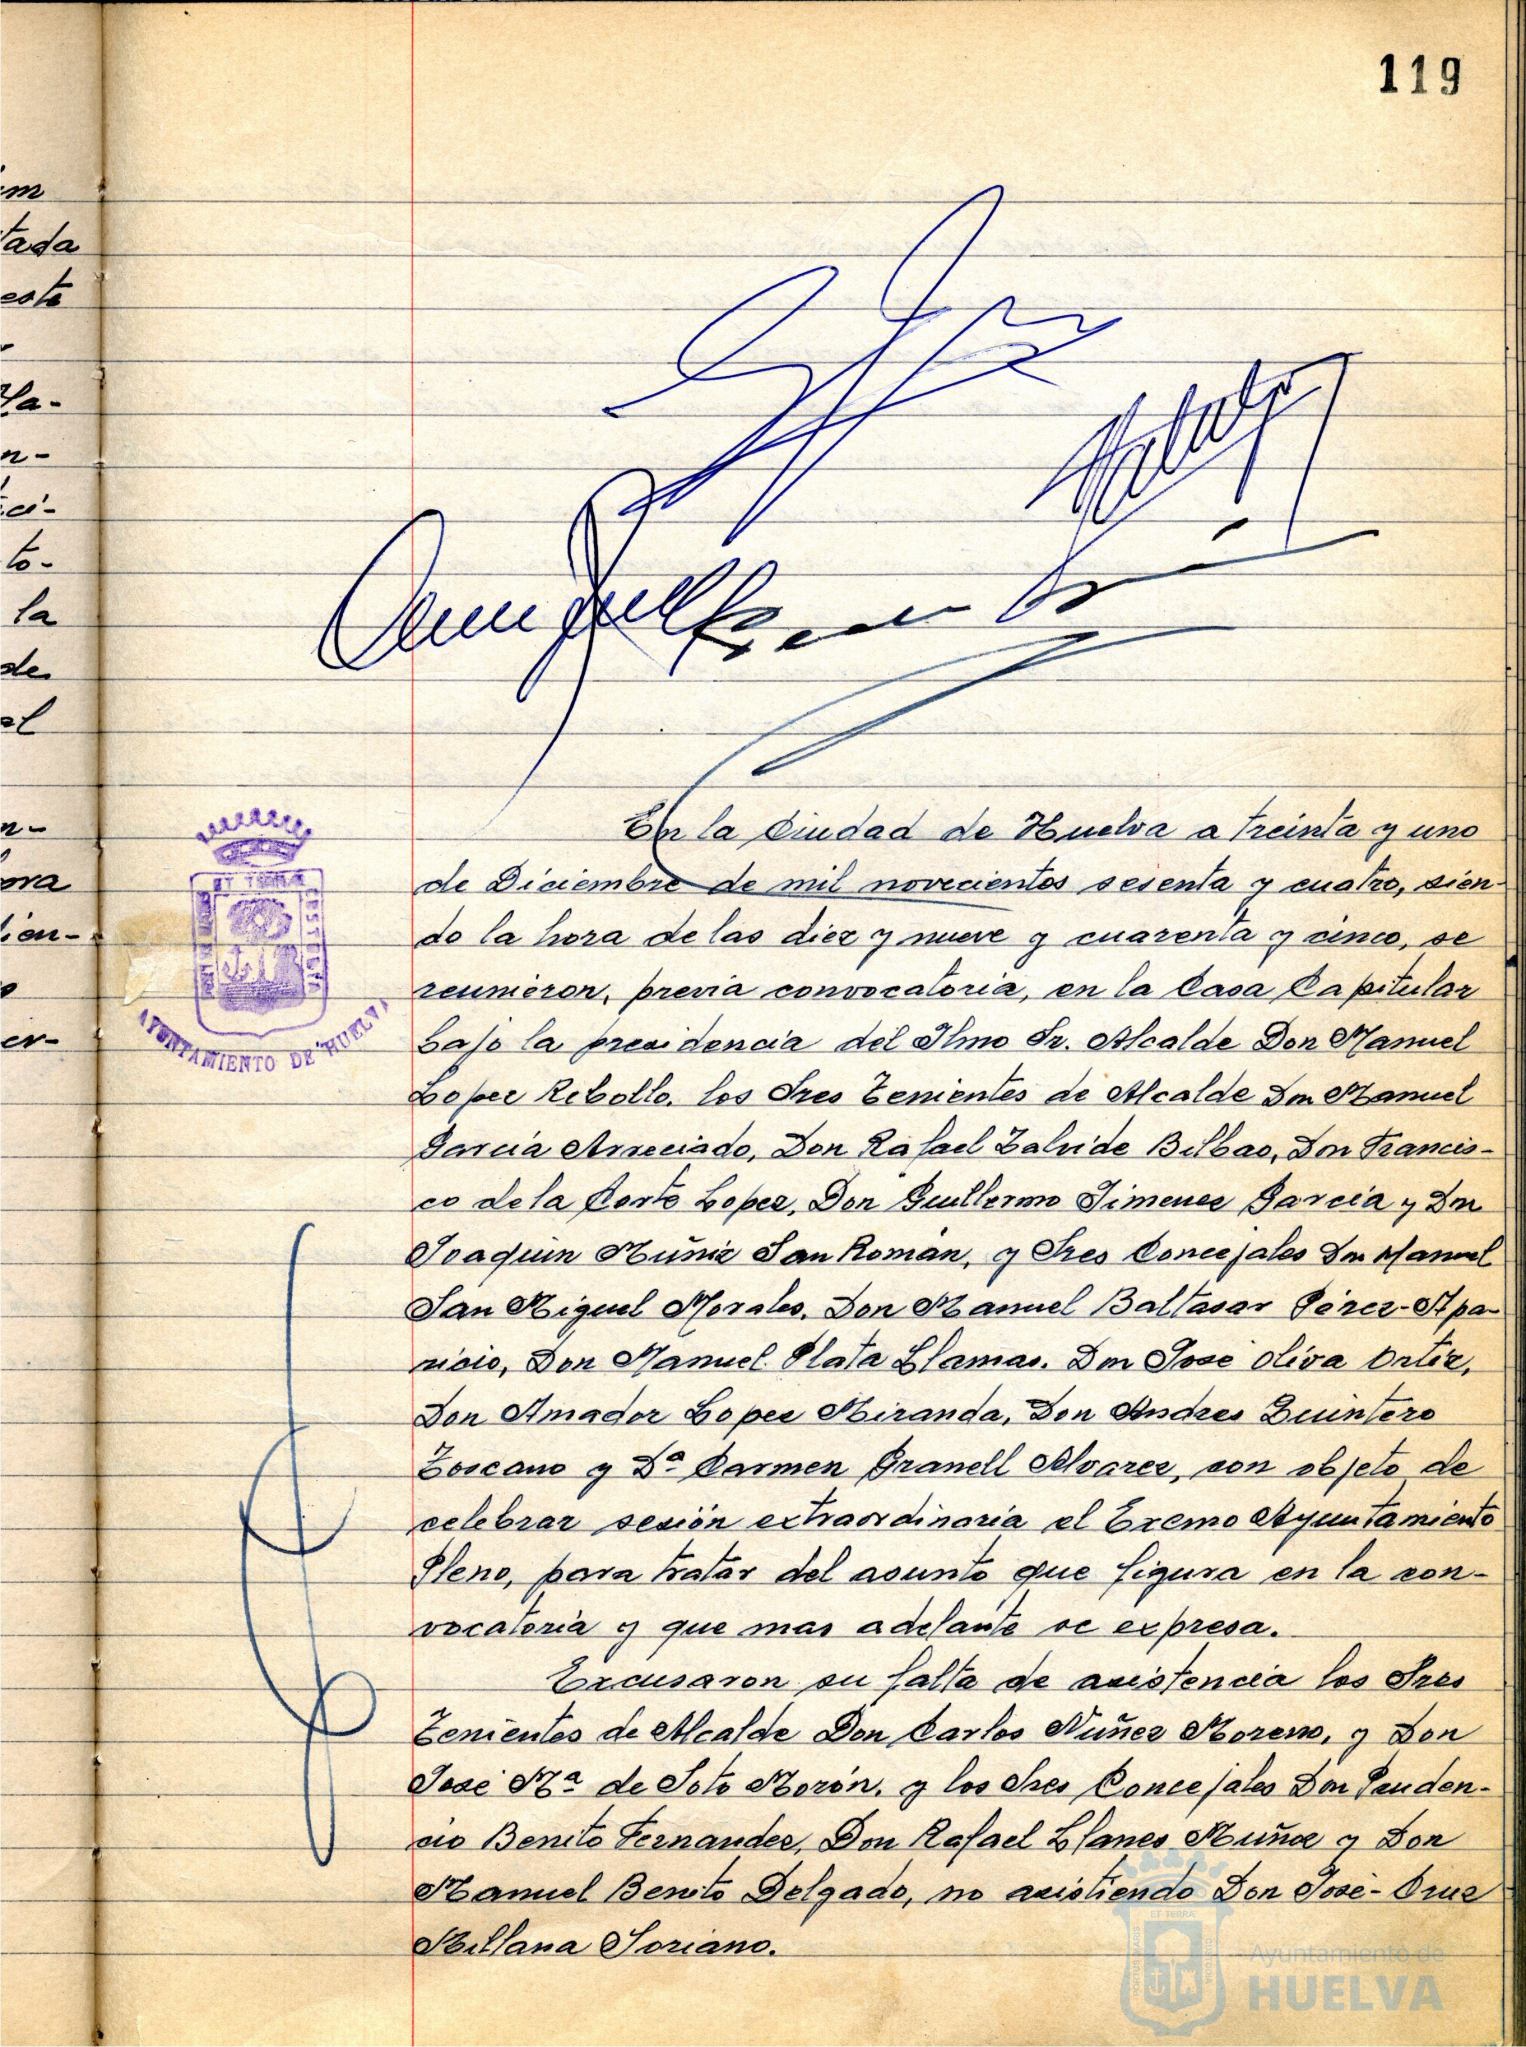 119
im
tada
este
Ma-
n-
ci-
to-
la
de
el
n-
ora
ien-
o
er-
ET TERRÆ
AYUNTAMIENTO DE HUELVA
En la Ciudad de Huelva a treinta y uno
de Diciembre de mil novecientos sesenta y cuatro, sien-
do la hora de las diez y nueve y cuarenta y cinco, se
reunieron, previa convocatoria, en la Casa Capitular
bajo la presidencia del Ilmo Sr. Alcalde Don Manuel
Lopez Rebollo, los Sres Tenientes de Alcalde Don Manuel
Garcia Arreciado, Don Rafael Zalvide Bilbao, Don Francis-
co de la Corte Lopez, Don Guillermo Jimenez Garcia y Don
Joaquin Muñiz San Román, y Sres Concejales Don Manuel
San Miguel Morales, Don Manuel Baltasar Pérez-Apa-
ricio, Don Manuel Plata Llamas. Don José Oliva Ortiz,
Don Amador Lopez Miranda, Don Andres Quintero
Toscano y Dª Carmen Granell Alvarez, con objeto de
celebrar sesión extraordinaria el Excmo Ayuntamiento
Pleno, para tratar del asunto que figura en la con-
vocatoria y que mas adelante se expresa.
Excusaron su falta de asistencia los Sres
Tenientes de Alcalde Don Carlos Nuñez Moreno, y Don
José Mª de Soto Morón, y los Sres Concejales Don Pruden-
cio Benito Fernandez, Don Rafael Llanes Muñoz y Don
Manuel Benito Delgado, no asistiendo Don José-Cruz
Millana Soriano.
ET TERRÆ
Ayuntamiento de
HUELVA